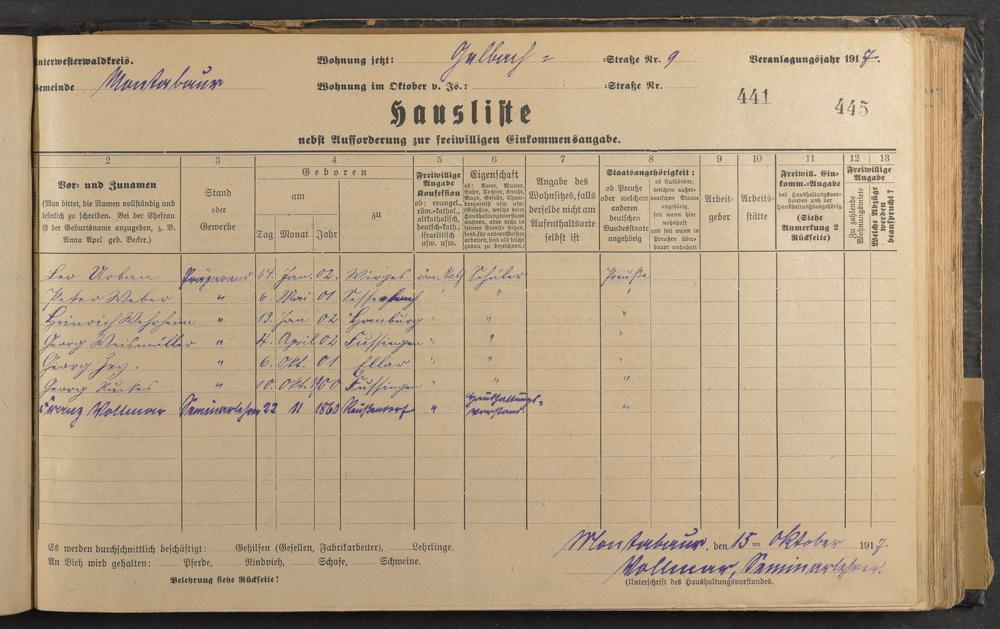 Unterwesterwaldkreis.
Wohnung jetzt: Gelbach= =Straße Nr. 9
Veranlagungsjahr 1917.
Gemeinde Montabaur
Wohnung im Oktober v. Js.: =Straße Nr.
441 445
Hausliste
nebst Aufforderung zur freiwilligen Einkommensangabe.
2 3 4 5 6 7 8 9 10 11 12 13
Vor- und Zunamen
(Man bittet, die Namen vollständig und
leserlich zu schreiben. Bei der Ehefrau
ist der Geburtsname anzugeben, z. B.
Anna Apel geb. Becker.)
Stand
oder
Gewerbe
Geboren
am
zu
Tag Monat Jahr
Freiwillige
Angabe
Konfession
ob: evangel.,
röm.-kathol.,
altkatholisch,
deutsch-kath.,
israelitisch
usw. usw.
Eigenschaft
ob: Vater, Mutter,
Sohn, Tochter, Knecht,
Magd, Geselle,
Angabe des
Wohnsitzes, falls
derselbe nicht am
Aufenthaltsorte
selbst ist
Staatsangehörigkeit:
ob Preuße
oder welchem
anderen
deutschen
Bundesstaate
angehörig
ob Ausländer,
welchem außer-
deutschen Staate
angehörig,
seit wann hier
wohnhaft
und
seit wann in
Preußen über-
haupt wohnhaft
Arbeit-
geber
Arbeits-
stätte
Freiwill. Ein-
komm.-Angabe
des Haushaltungsvor-
standes und der
Haushaltungsangehörig.
(Siehe
Anmerkung 2
Rückseite)
Freiwillige
Angabe
Zu zahlende
Wohnungsmiete
Welche Abzüge
werden
beansprucht?
Leo Urban Präparand 14. Jan. 02. Wirges röm. kath Schüler Preuße
Peter Weber " 6. Mai 01 " " "
Heinrich Wehrheim " 13. Jan 02 Homburg " " "
Georg Weismüller " 4. April 02 Fussingen " " "
Georg Hey. " 6. Okt. 01 Ellar " " "
Georg " 10. Okt. 1900 Fussingen " " "
Franz Vollmar Seminarlehrer 22 11 1860 " Haushaltungs-
vorstand "
Es werden durchschnittlich beschäftigt: Gehilfen (Gesellen, Fabrikarbeiter), Lehrlinge.
An Vieh wird gehalten: Pferde, Rindvieh, Schafe, Schweine.
Belehrung siehe Rückseite!
Montabaur, den 15ten Oktober 1917
Vollmar, Seminarlehrer.
(Unterschrift des Haushaltungsvorstandes.